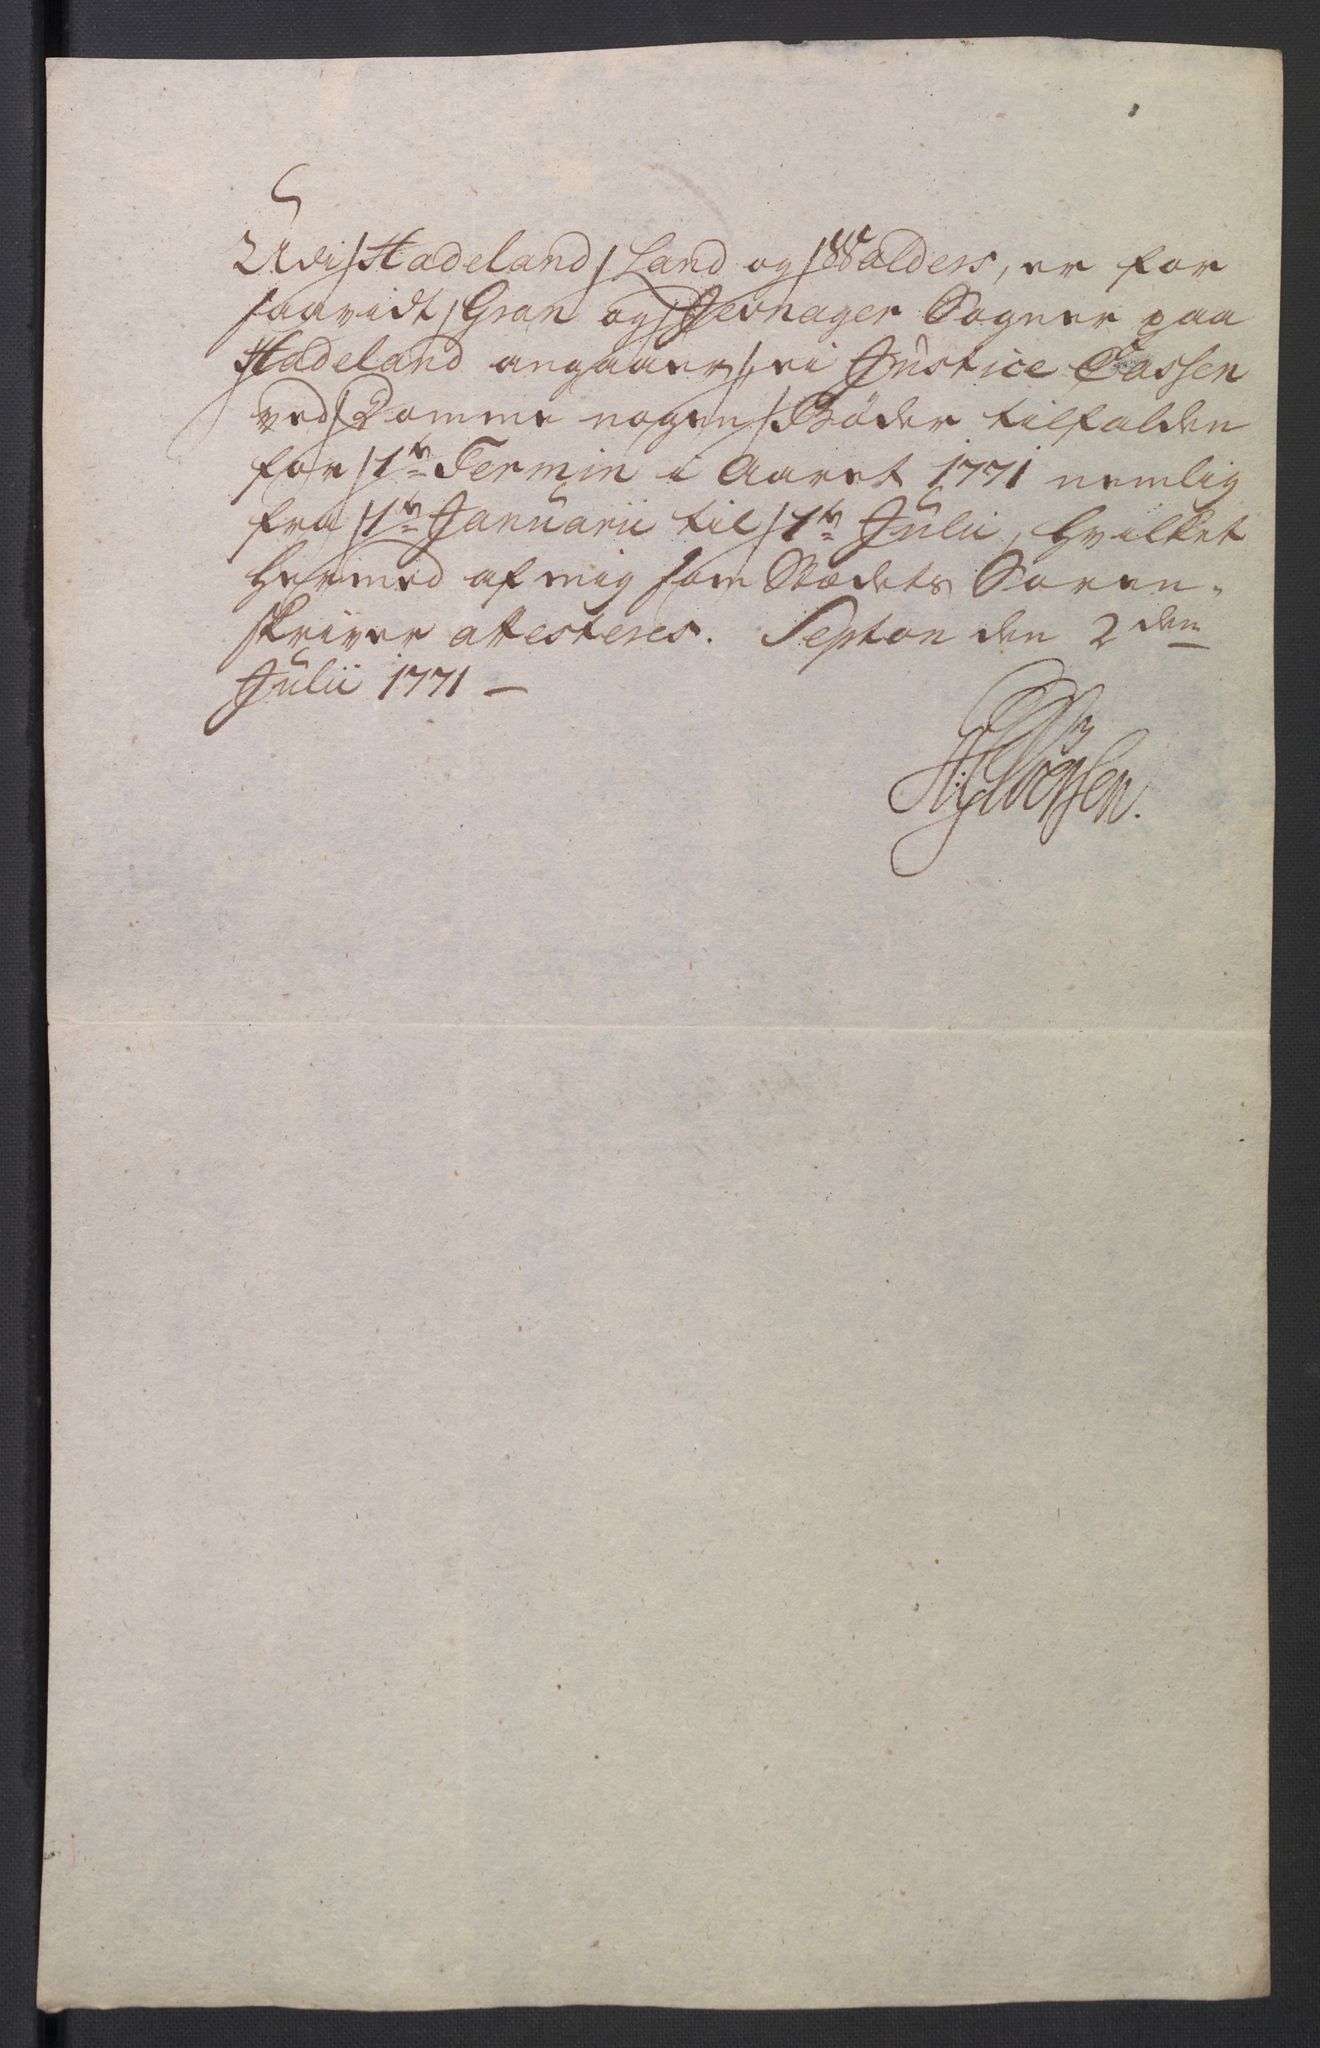 Udi Hadeland, Land og Walders, er for
saavidt Gran og Jevnager Sogner paa
Hadeland angaaer, ei Justice Cassen
ved Domme nogen Bøder tilfalden
for 1te Termin i Aaret 1771 nemlig
fra 1te Januarii til 1te Julii, hvilket
hermed af mig som Stædets Soren-
skriver attesteres. Septon den 2den
Julii 1771 –